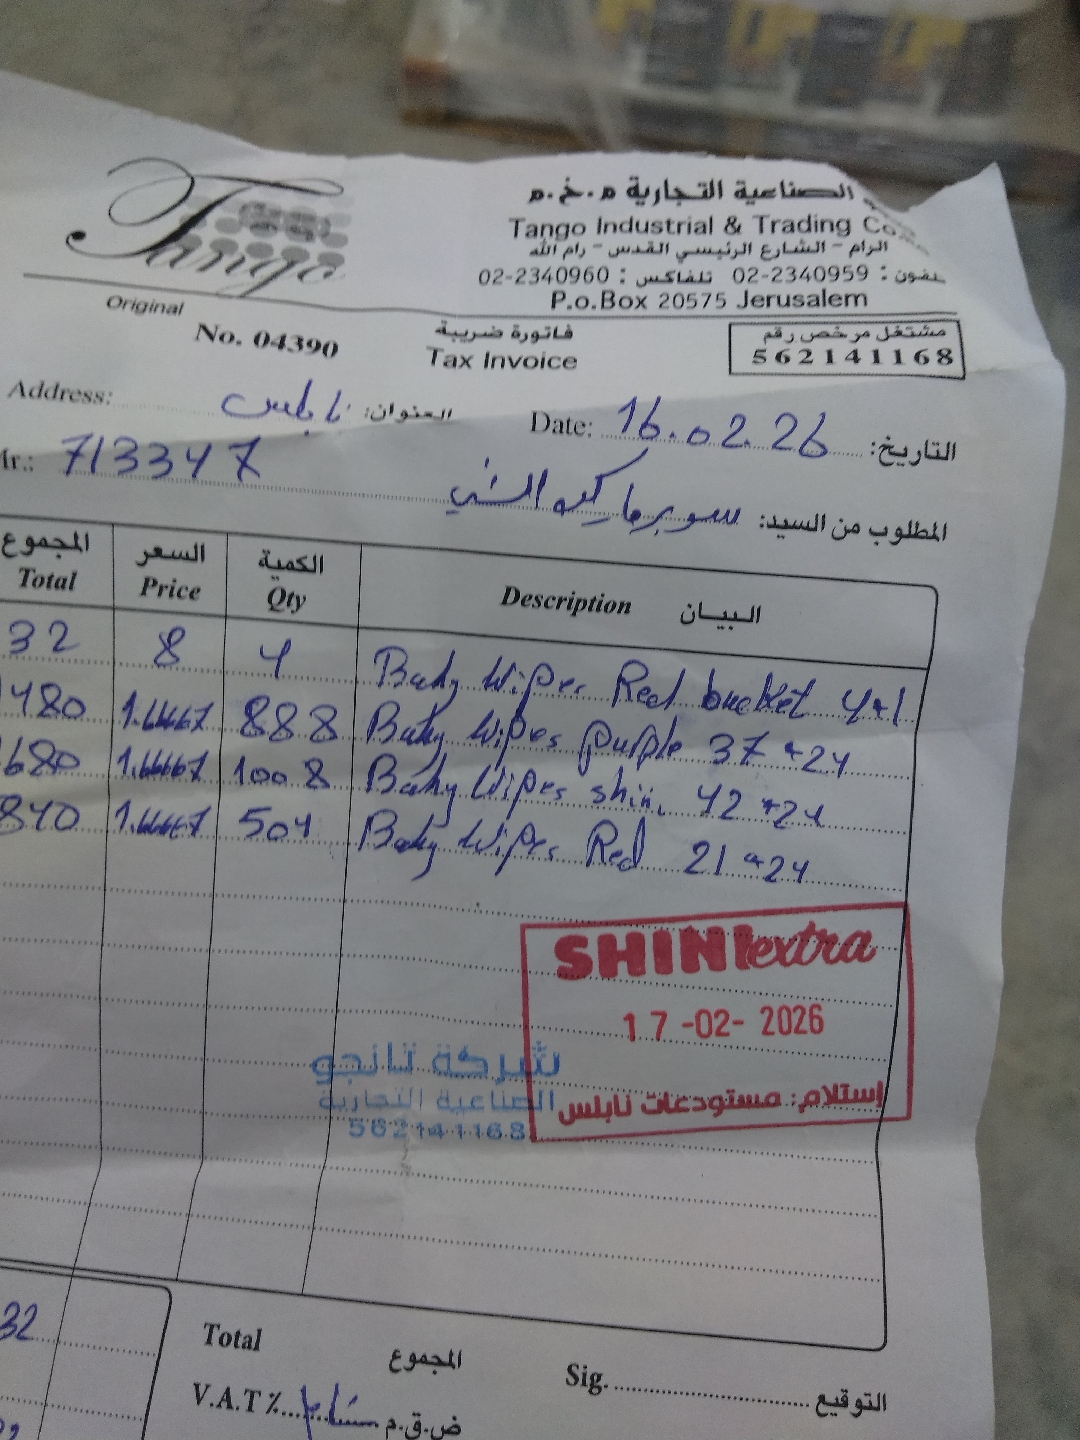 Tango
الصناعية التجارية م.خ.م
Tango Industrial & Trading Co
الرام - الشارع الرئيسي القدس - رام الله
تلفون : 02-2340959 تلفاكس : 02-2340960
P.o.Box 20575 Jerusalem
Original
No. 04390
فاتورة ضريبة
Tax Invoice
مشتغل مرخص رقم
562141168
Address: العنوان: نابلس
Date: 16.02.26 التاريخ:
Mr.: 713347
المطلوب من السيد: سوبرماركت
المجموع السعر الكمية
Total Price Qty Description البيان
32 8 4 Baby Wipes Red bucket 4*1
1480 1.66667 888 Baby Wipes purple 37 *24
1680 1.66667 1008 Baby Wipes shini 42 *24
840 1.66667 504 Baby Wipes Red 21 *24
SHINI extra
17 -02- 2026
إستلام: مستودعات نابلس
شركة تانجو
الصناعية التجارية
562141168
32
Total المجموع
Sig. التوقيع
V.A.T٪ شامل ض.ق.م